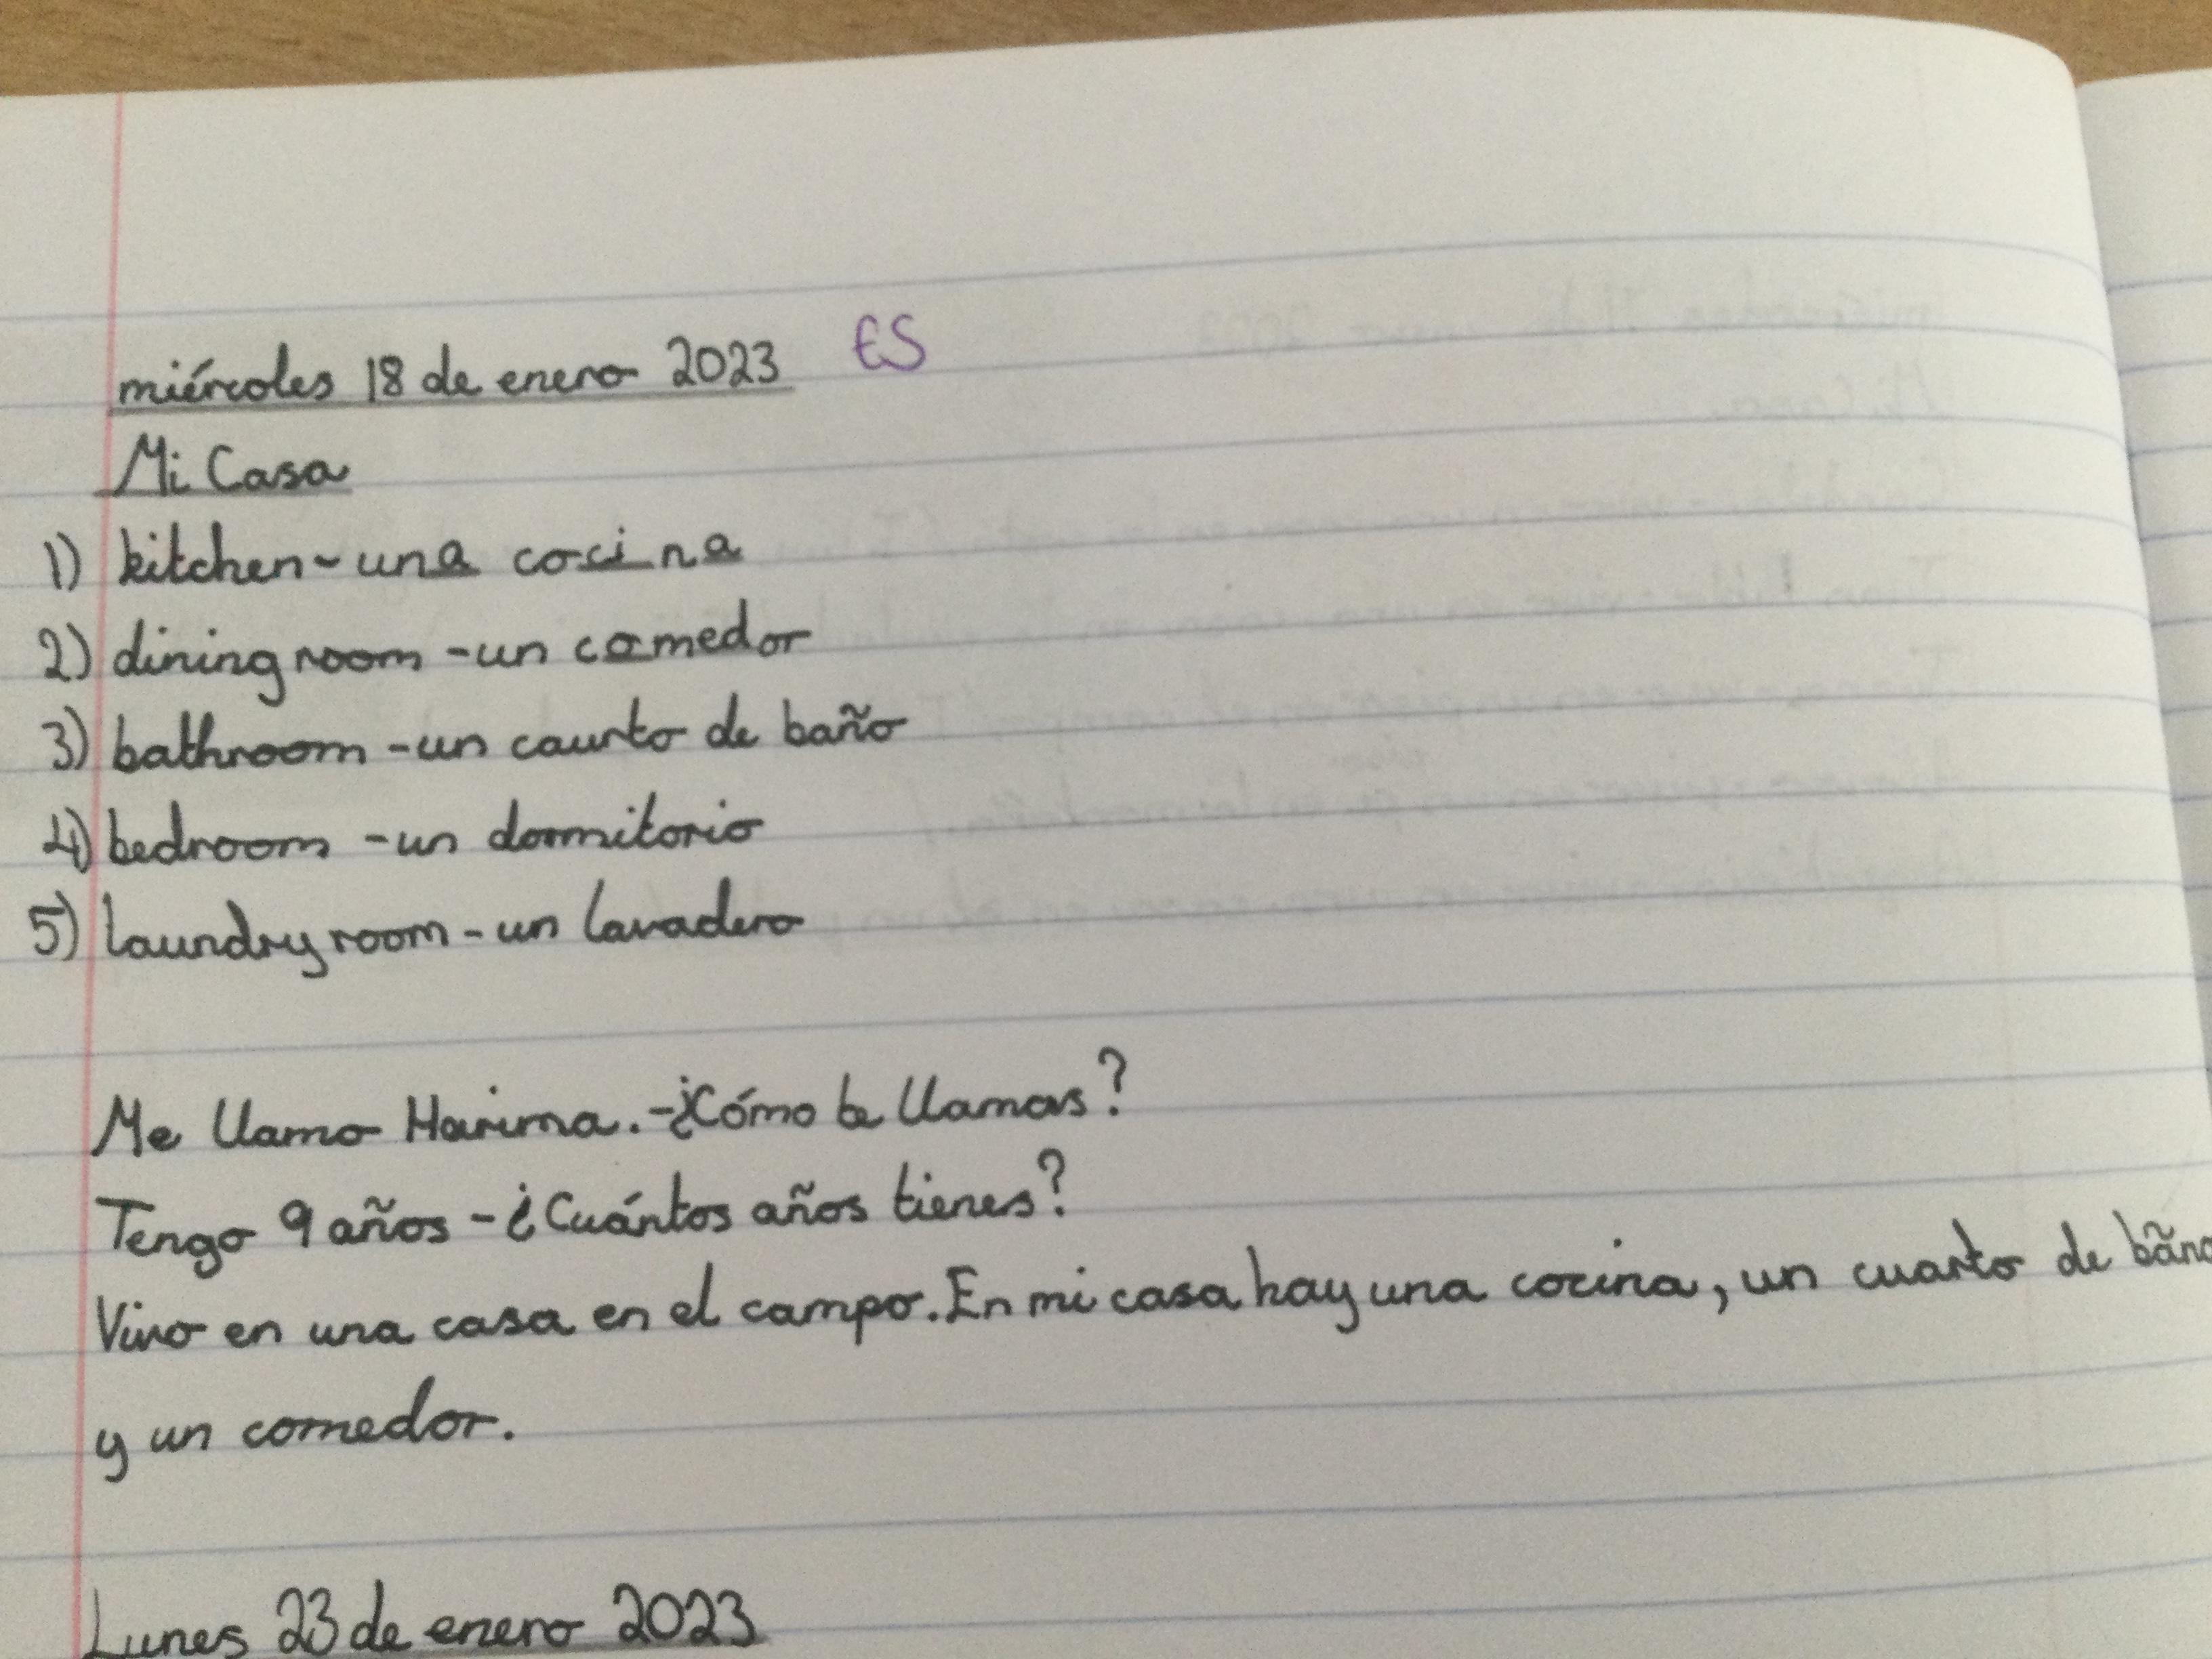 miércoles 18 de enero 2023 ES
Mi Casa
1) kitchen - una cocina
2) dining room - un comedor
3) bathroom - un caurto de baño
4) bedroom - un dormitorio
5) laundry room - un lavadero
Me llamo Harima. - ¿Cómo te llamas?
Tengo 9 años - ¿Cuántos años tienes?
Vivo en una casa en el campo. En mi casa hay una cocina, un cuarto de baño
y un comedor.
Lunes 23 de enero 2023